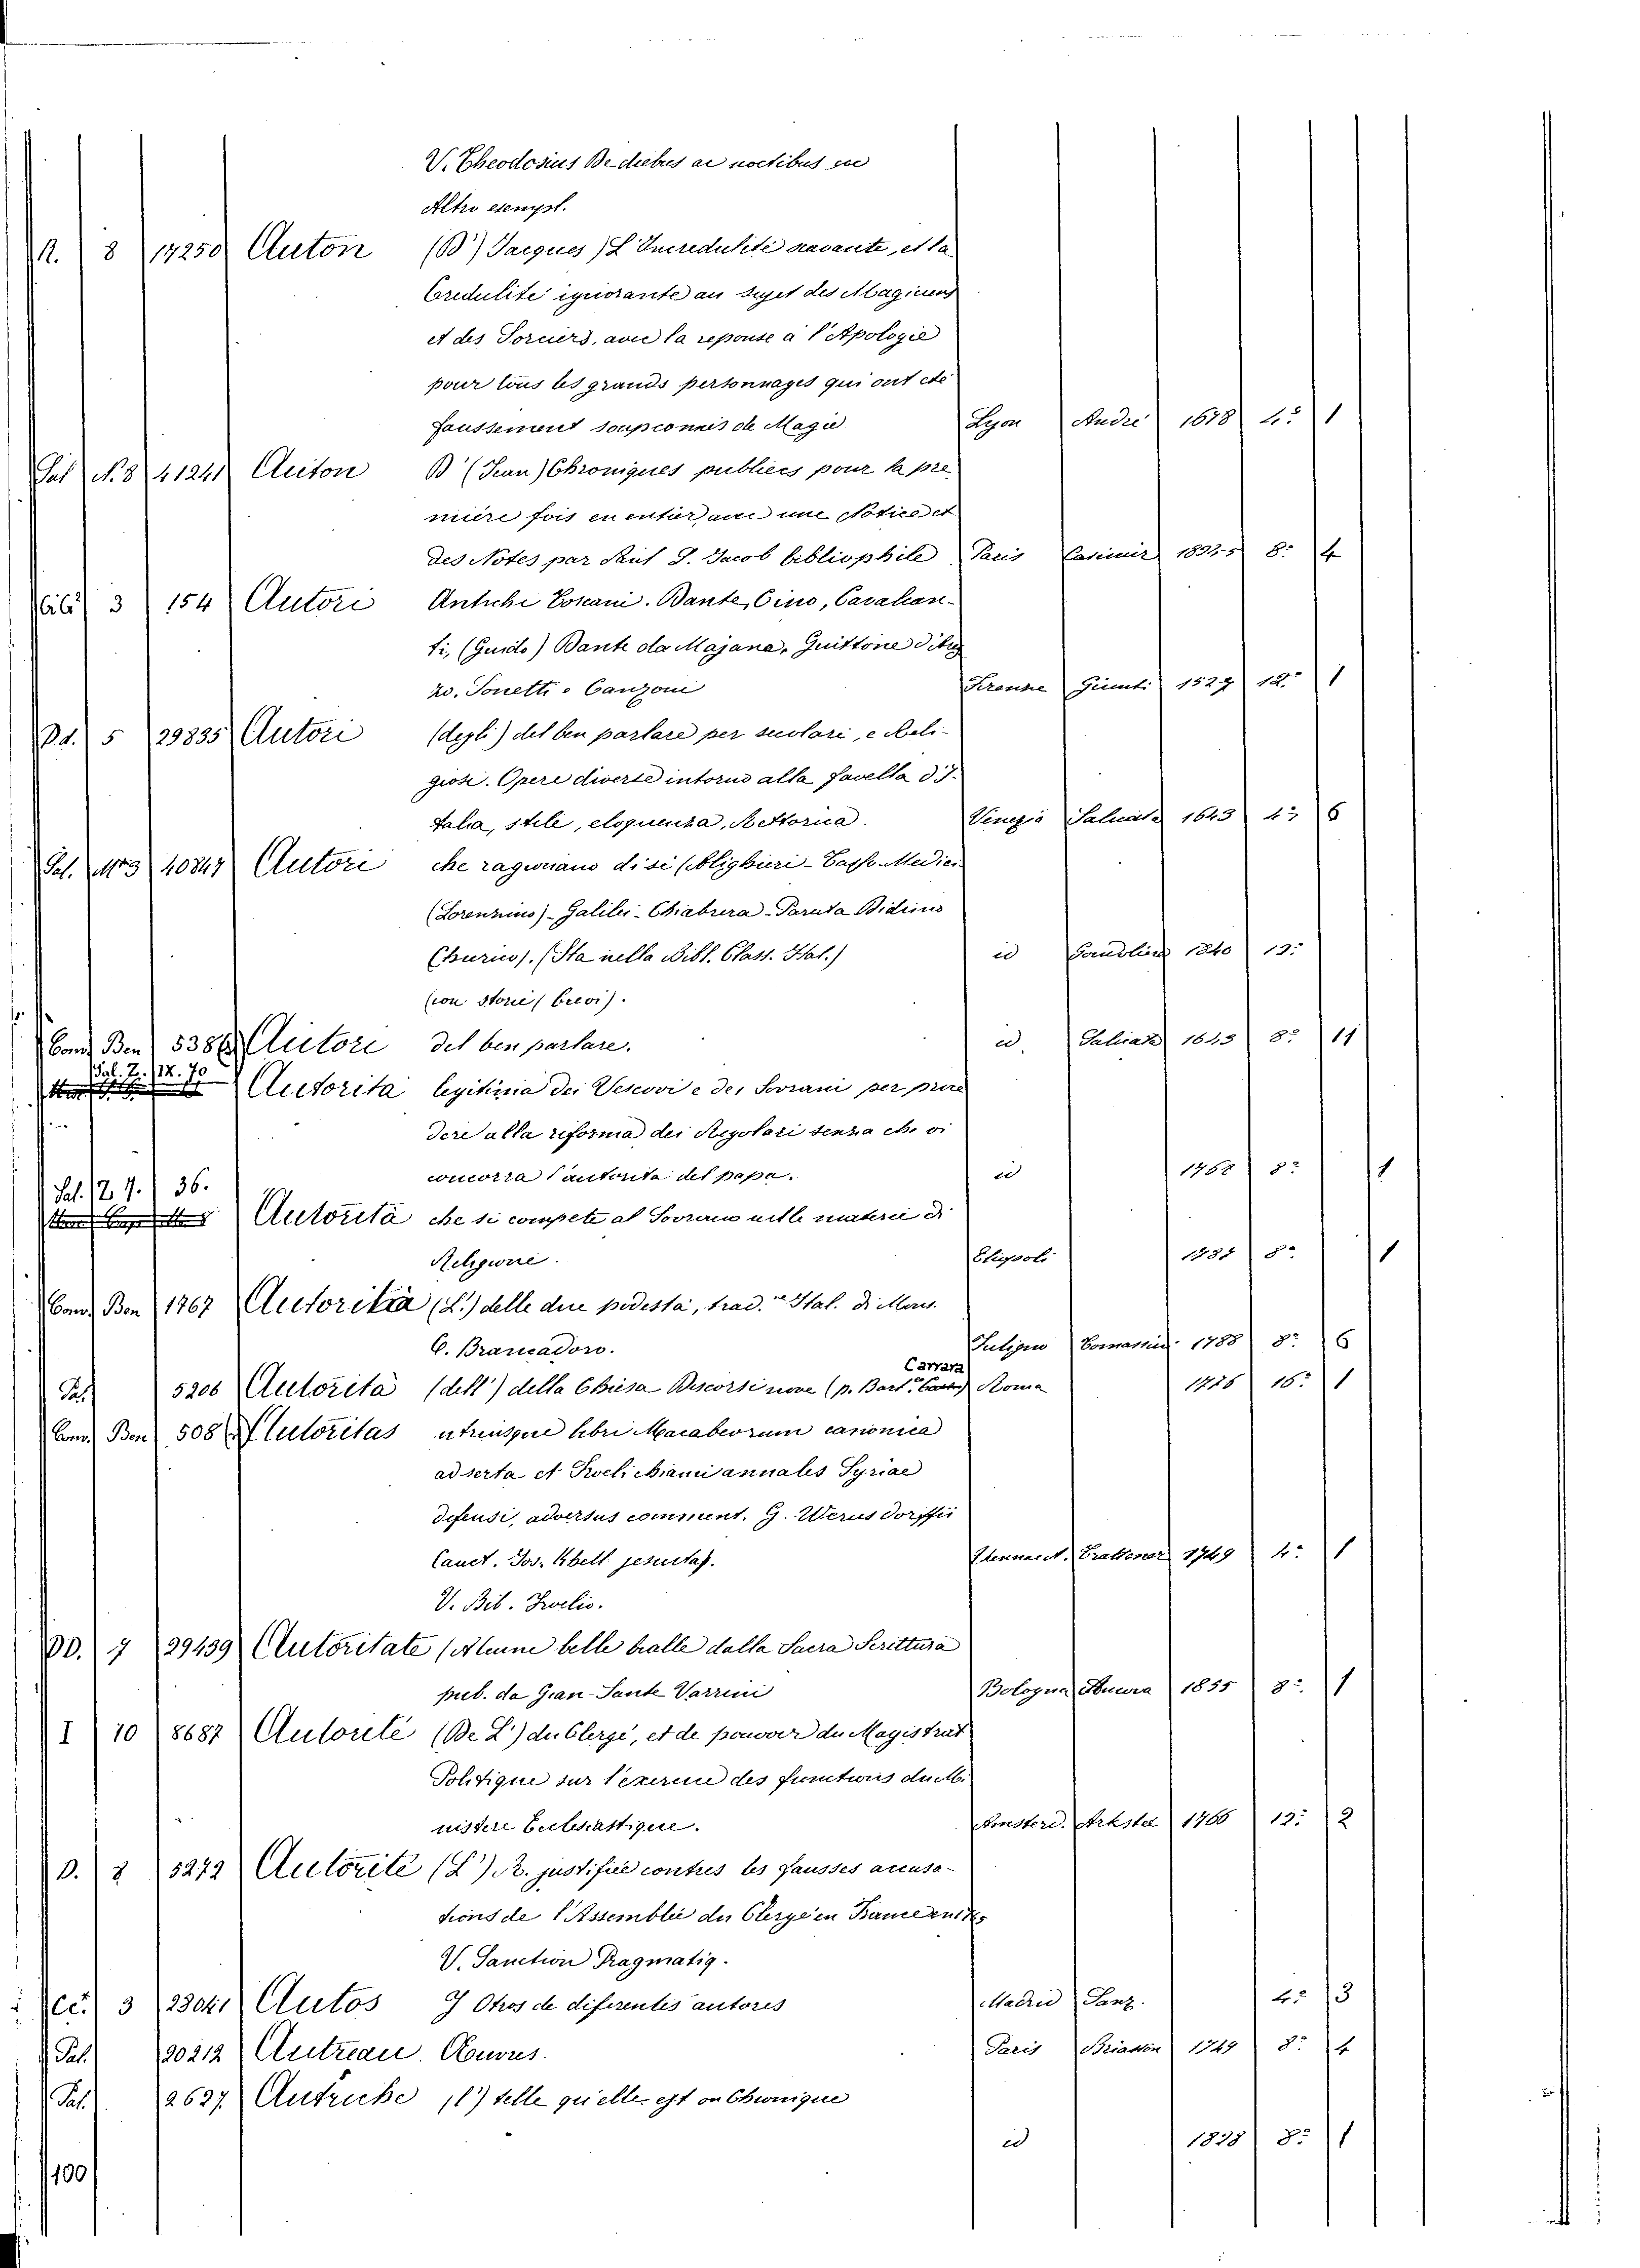 V. Theodosius De diebus ac noctibus
Altro esempl.
R. 8 14250 Auton (D') Jacques) L'Incredulité scavante, et la
Credulité ignorante au sujet des Magiciens
et des Sorciers, avec la reponse à l'Apologie
pour tous les grands personnages qui ont eté
faussement soupconnés de Magie Lyon André 1678 4.° 1
Pal. N. 8 41241 Auton D' (Jean) Chroniques publiées pour la pre
miere fois en entier avec une Notice et
des Notes par Paul J. Jacob bibliophile Paris Casimir 1832-5 8.° 4
3 154 Autori Antichi Toscani. Dante, Cino, Cavalcan-
ti, (Guido) Dante da Majana, Guittone d'Arez
zo. Sonetti e Canzoni Firenze Giunti 1527 12.° 1
D.d. 5 29835 Autori (degli) del ben parlare per secolari, e Reli-
giosi. Opere diverse intorno alla favella d'I-
talia, stile, eloquenza, Rettorica. Venezia Salicata 1643 4.° 6
Pal. 40847 Autori che ragionano di sé (Alighieri - Tasso - Medici
(Lorenzino) - Galilei - Chiabrera - Paruta Bidino
(Sta nella Bibl. Class. Ital.) id Gondolier 1840 12.°
(con storie brevi).
Conv. Ben 538 Autori del ben parlare. id. Salicata 1643 8.° 11
Pal. Z. 14. 70 Autorità legitima dei Vescovi e dei Sovrani per prove
dere alla riforma dei Regolari senza che vi
concorra l'autorità del papa. id 1768 8.° 1
Pal. Z. 7. 36. Autorità che si compete al Sovrano nelle materie di
Religione. Eliopoli 1787 8.° 1
Conv. Ben 1767 Autorità (L') delle due podestà, trad. Ital. di Mons.
C. Brancadoro. Fuligno Tomassini 1788 8.° 6
Pal. 5206 Autorità (dell') della Chiesa Discorsi nove (p. Bart. Carrara Roma 1726 16.° 1
Conv. Ben 508 Autoritas utriusque libri Macabeorum canonica
adserta et Froelichiani annales Syriae
defensi, adversus comment. G. Wernsdorffii
Cauct. Jos. Khell jesuita). Viennae Trattener 1749 4.° 1
V. Bib. Froelio.
D. 7 29439 Autoritate (Alcune belle tralle dalla Sacra Scrittura
pub. da Gian-Sante Varrini Bologna Ancora 1855 8.° 1
I 10 8687 Autorité (De L') du Clergé, et de pouvoir du Magistrat
Politique sur l'exercice des functions du Mi
nistere Ecclesiastique. Amsterd. Arkstee 1766 12.° 2
D. 8 5272 Autorité (L') R. justifiée contres les fausses accusa-
tions de l'Assemblée du Clergé en France
V. Sanction Pragmatiq.
3 23041 Autos Y Otros de diferentes autores Madrid Sanz. 4.° 3
Pal. 20212 Autreau. Œuvres. Paris Briasson 1749 8.° 4
Pal. 2627 Autriche (l') telle qu'elle est ou Chronique
id 1828 8.° 1
100